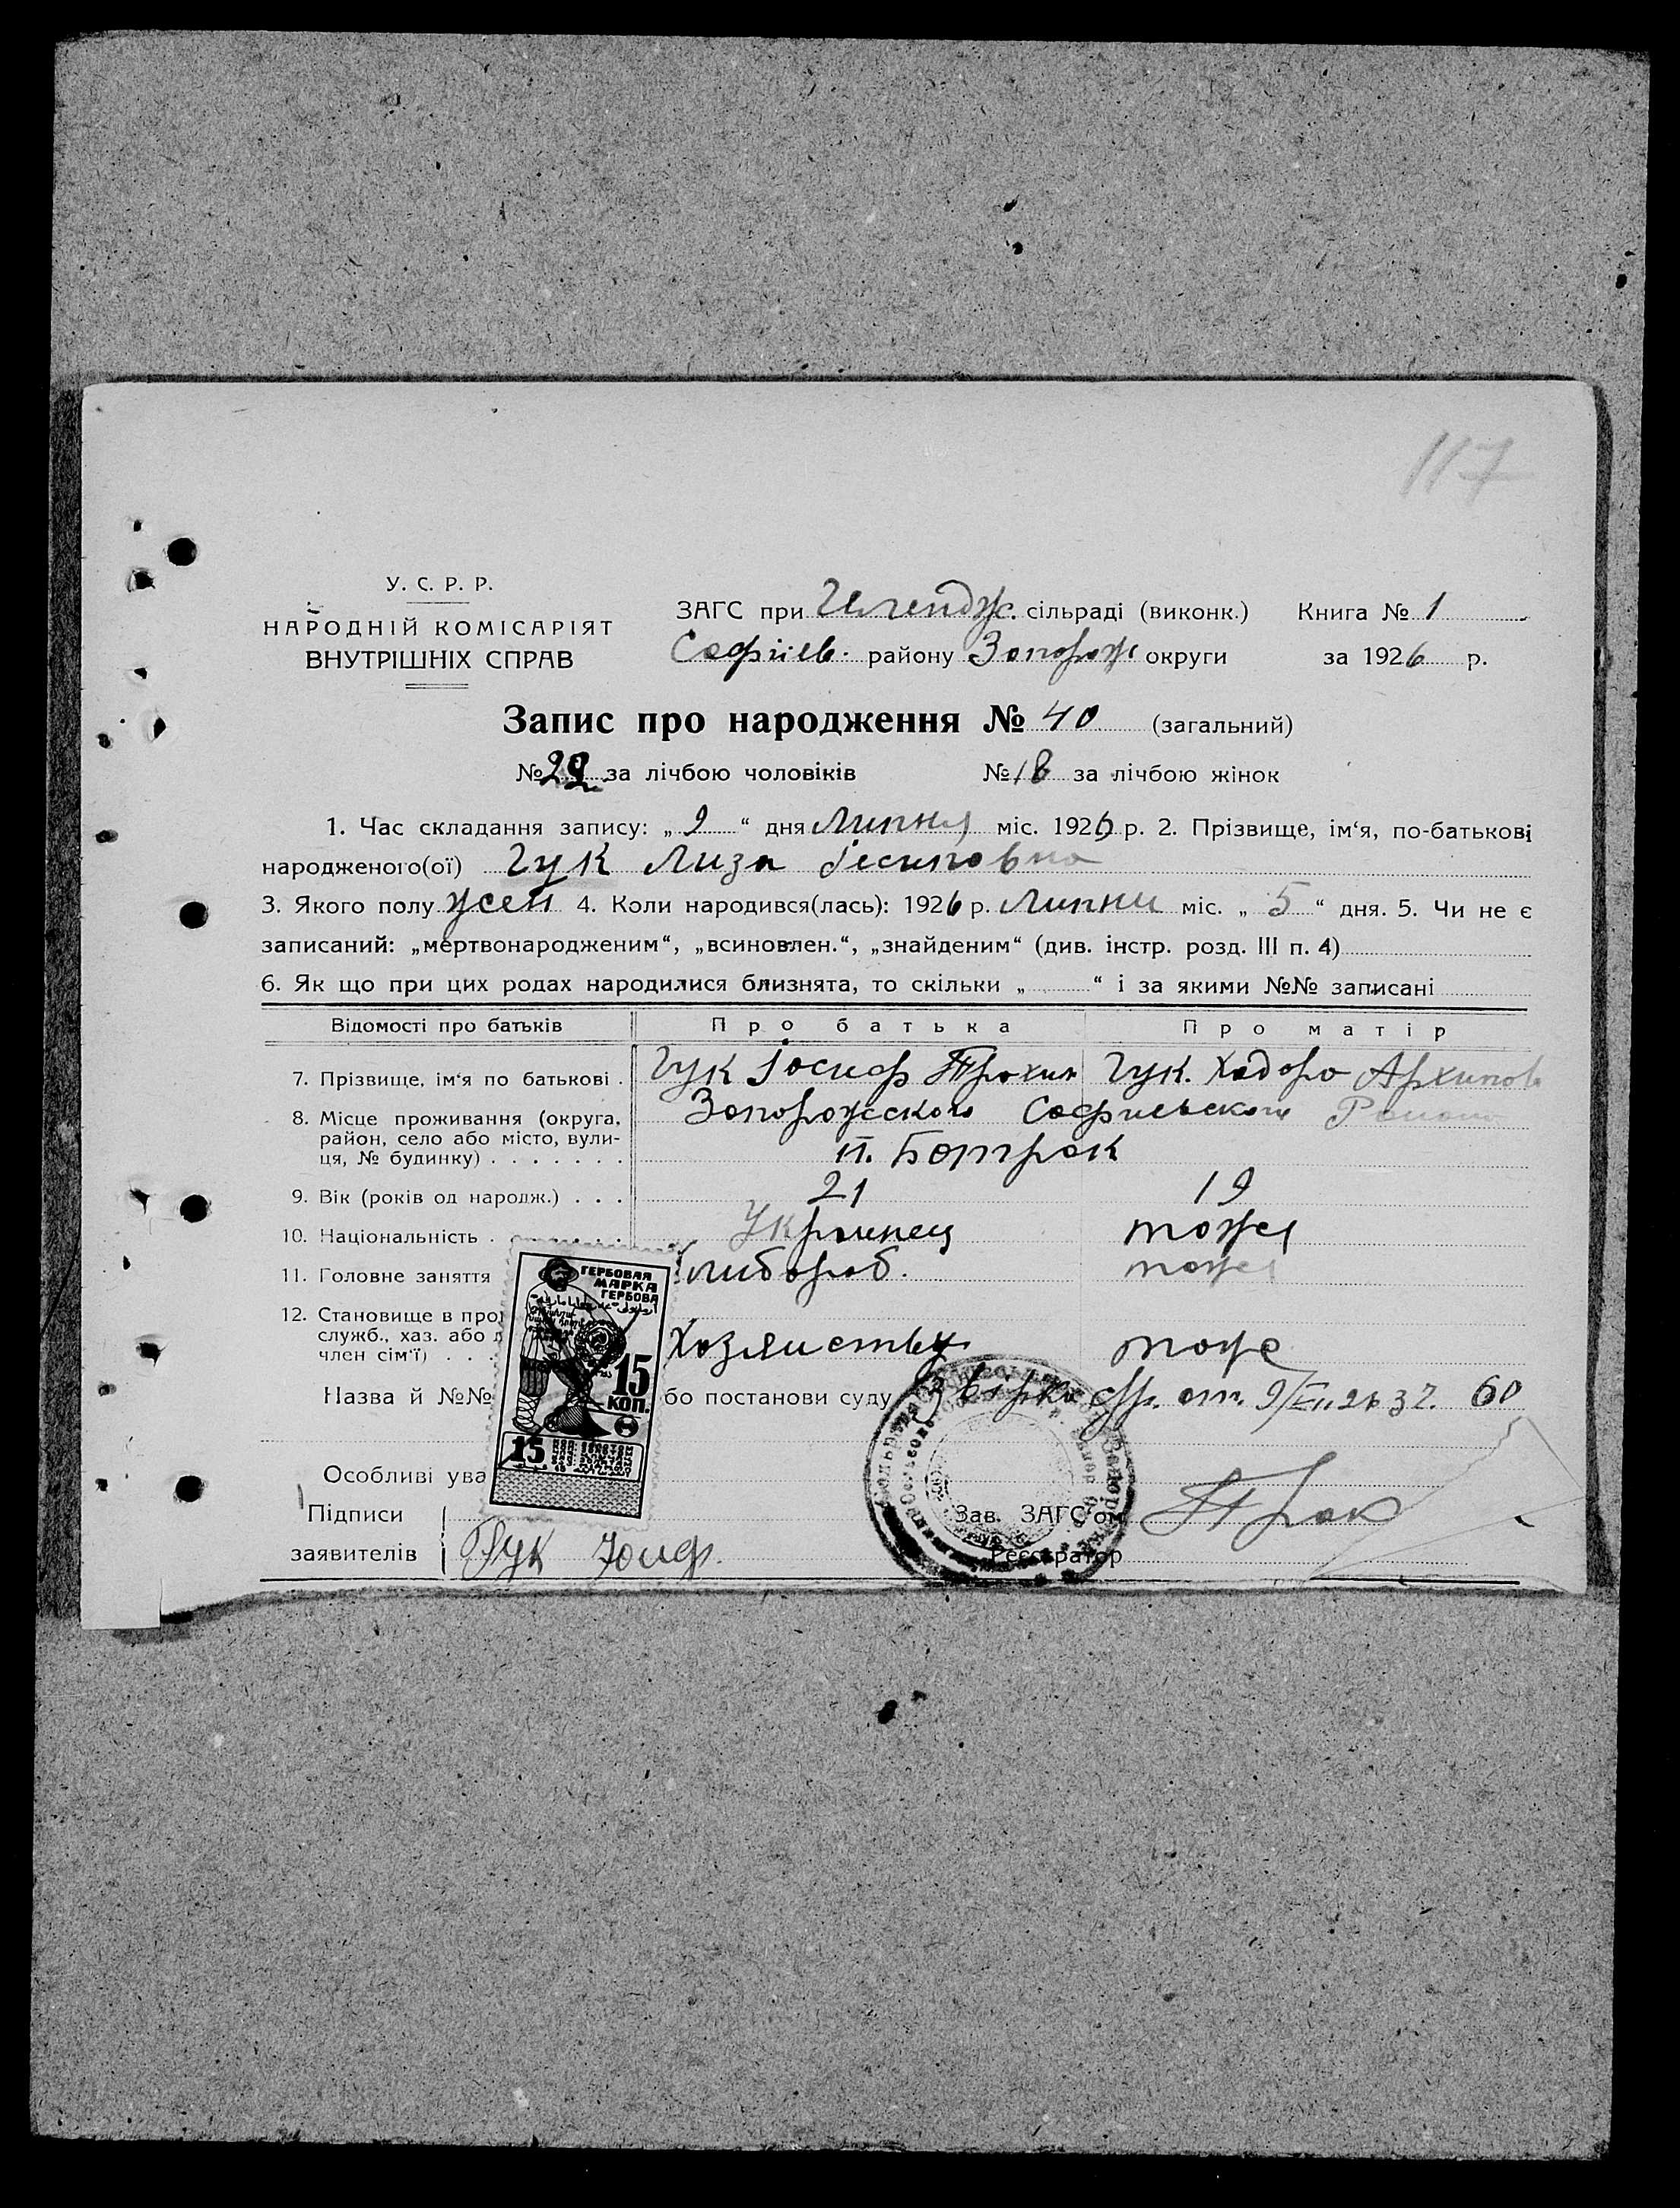 117
У. С. Р. Р.
НАРОДНІЙ КОМІСАРІЯТ
ВНУТРІШНІХ СПРАВ
ЗАГС при сільраді (виконк.) Книга № 1
Софіїв. району Запорож округи за 1926 р.
Запис про народження № 40 (загальний)
№ 22 за лічбою чоловіків № 18 за лічбою жінок
1. Час складання запису: „ 9 “ дня Липня міс. 1926 р. 2. Прізвище, ім‘я, по-батькові
народженого(ої) Гук Лиза Іесиповна
3. Якого полу жен 4. Коли народився(лась): 1926 р. Липня міс. „ 5 “ дня. 5. Чи не є
записаний: „мертвонародженим“, „всиновлен.“, „знайденим“ (див. інстр. розд. III п. 4)
6. Як що при цих родах народилися близнята, то скільки „ “ і за якими №№ записані
Відомості про батьків Про батька Про матір
7. Прізвище, ім‘я по батькові . Гук Іосиф Трохим Гук. Ходора Архипов
8. Місце проживання (округа, Запорожского Софиевского Района
район, село або місто, вули-
ця, № будинку) . . . . . . . п. Ботрак
9. Вік (років од народж.) . . . 21 19
10. Національність . Украинец тоже
11. Головне заняття либороб. тоже
12. Становище в про
служб., хаз. або
член сім‘ї) . . . Хозяиству тоже
Назва й №№ бо постанови суду Звірка от. 9/VII. 26 З7. 60
Особливі ува
Підписи
заявителів Гук Зав. ЗАГС‘ом
Реєстратор
ГЕРБОВАЯ
МАРКА
ГЕРБОВА
15
КОП.
15